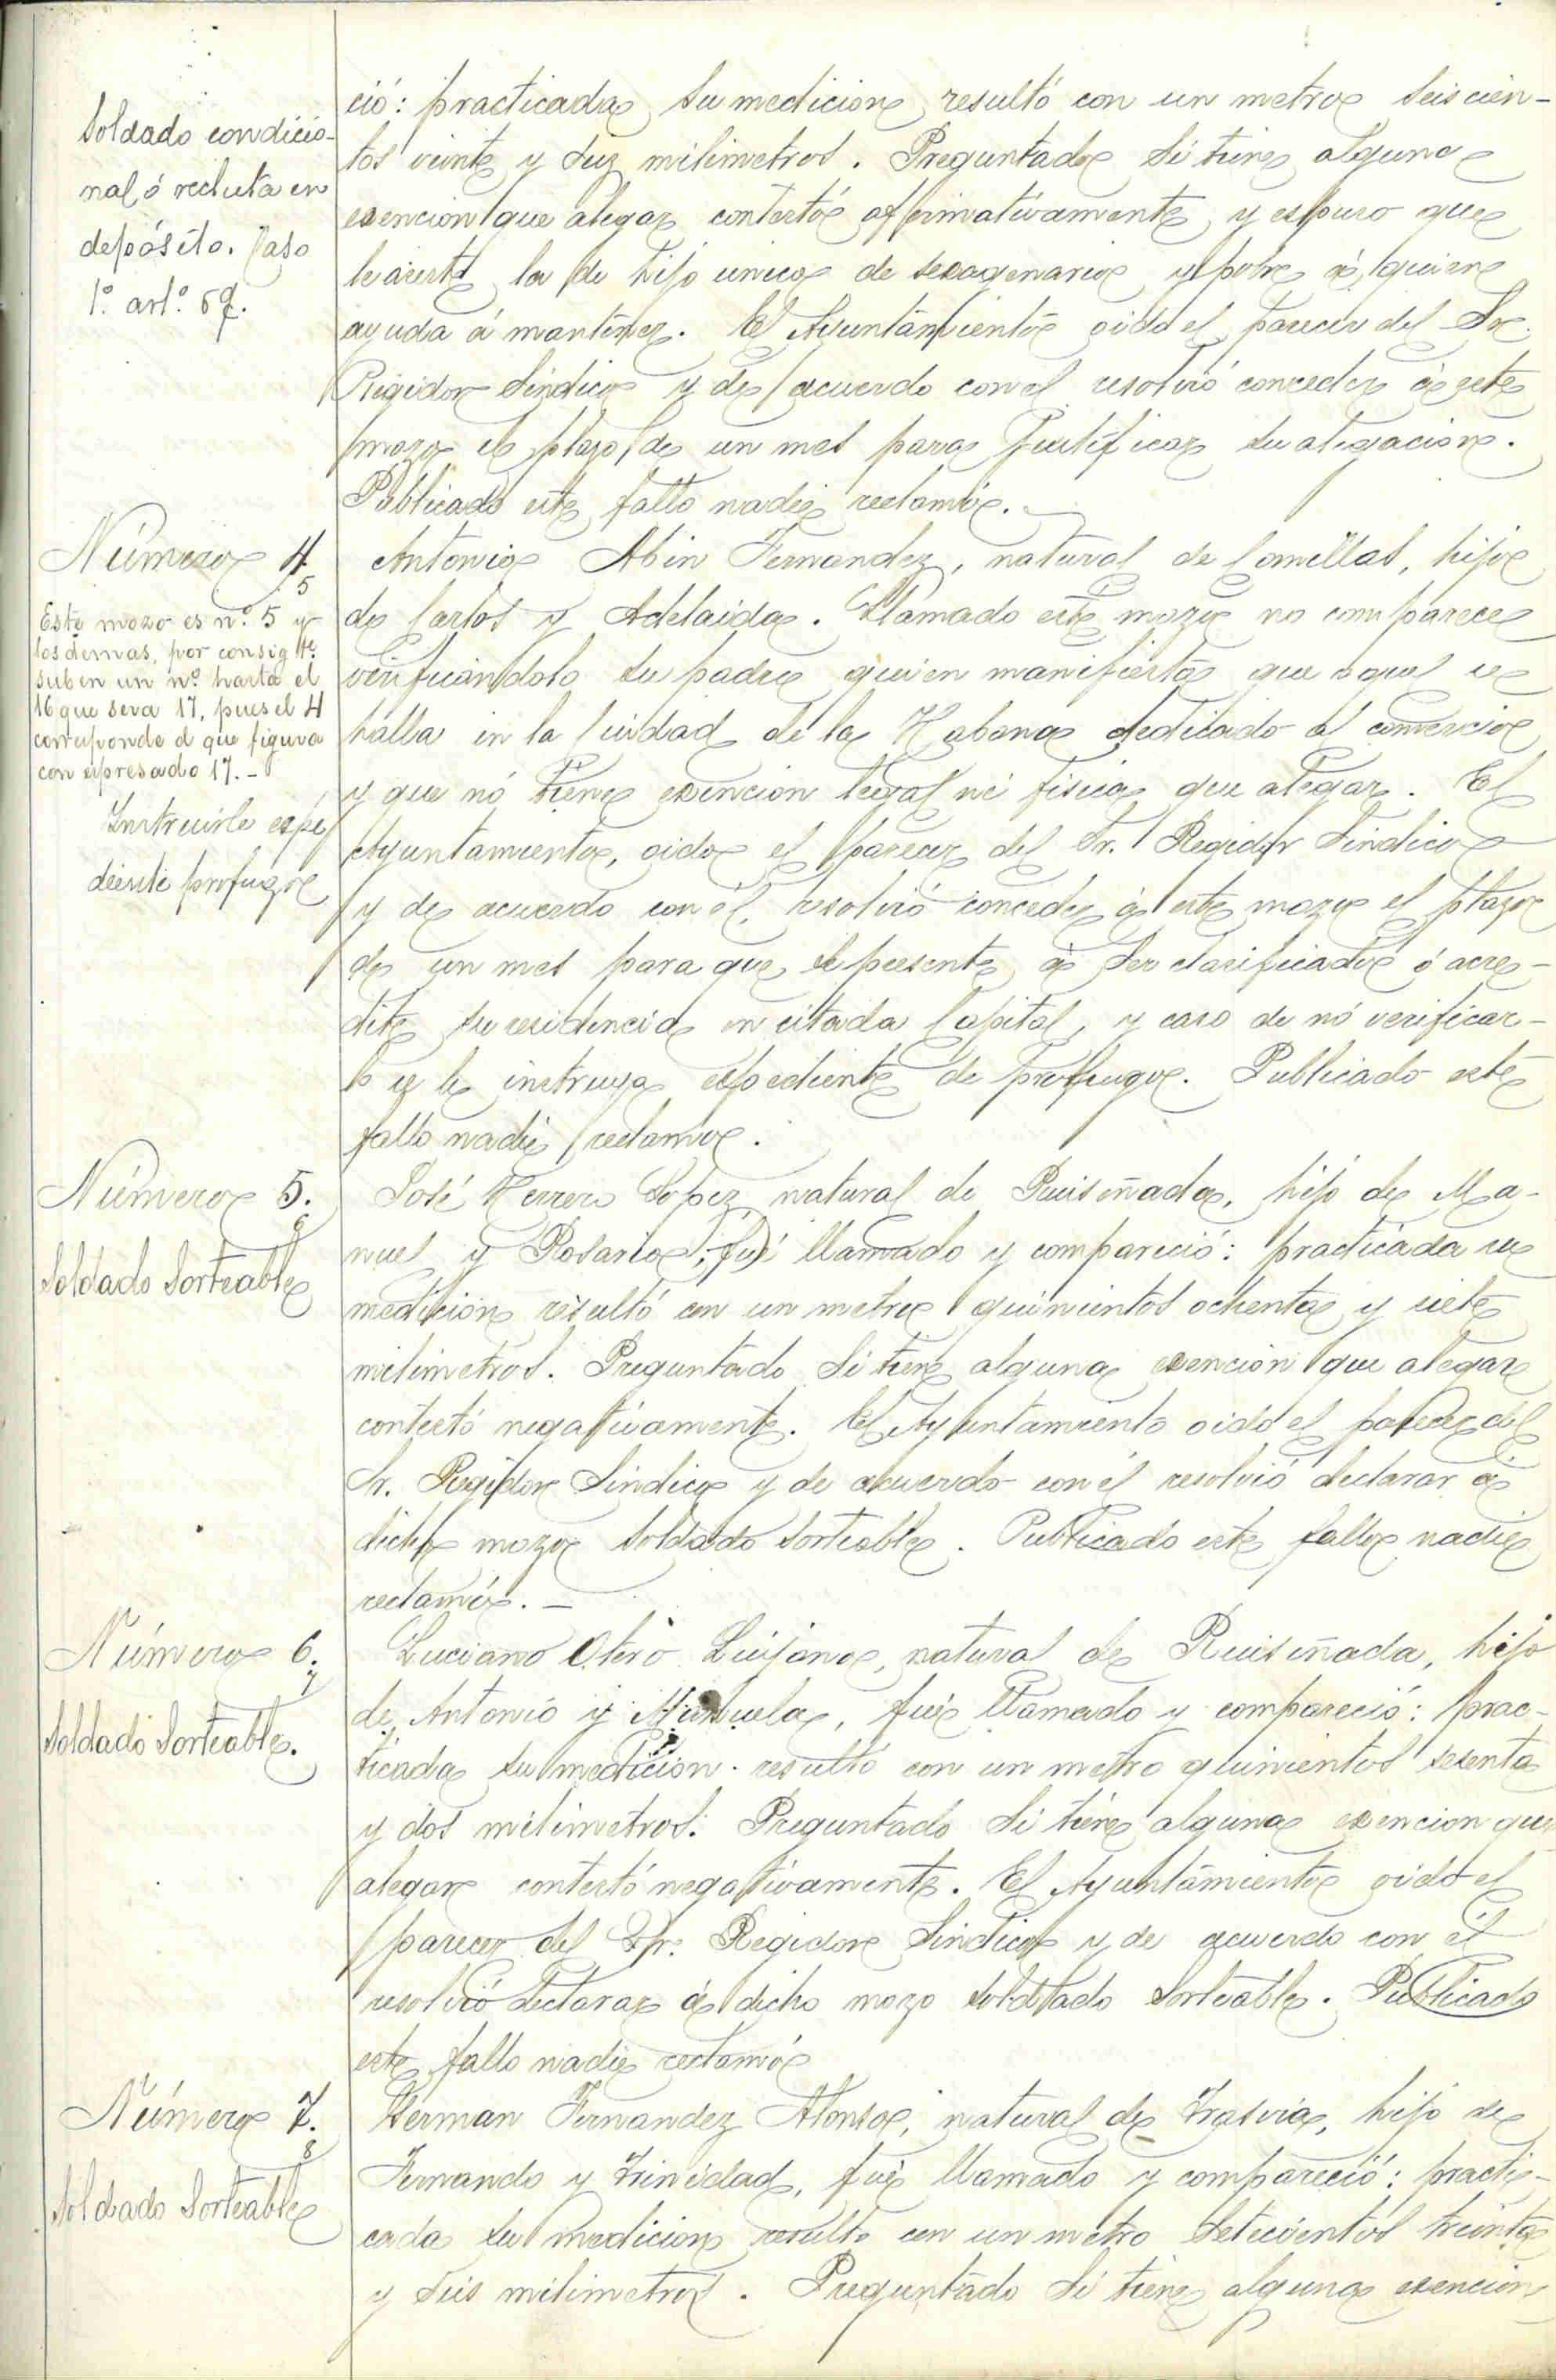 Soldado condicio-
nal ó recluta en
depósito. Caso
1º artº 69.
ció: practicada su medicion resultó con un metro seiscien-
tos veinte y seis milimetros. Preguntado si tiene alguna
esencion que alegar contestó afirmativamente y espuso que
le asiste la de hijo unico de sexagenario y pobre á quien
ayuda á mantener. El Ayuntamiento oido el parecer del Sr.
Regidor Sindico y de acuerdo con el resolvió conceder á este
mozo el plazo de un mes para justificar su alegacion.
Publicado este fallo nadie reclamó.
Número 4
5
Este mozo es nº 5 y
los demas, por consigte
suben un nº hasta el
16 que sera 17, pues el 4
corresponde al que figura
con espresado 17.-
Instruirle espe
diente profugo
Antonio Abin Fernandez, natural de Comillas, hijo
de Carlos y Adelaida. Llamado este mozo no comparece
verificandolo su padre quien manifiesta que aquel se
halla en la Ciudad de la Habana dedicado al comercio
y que nó tiene esencion legal ni fisica que alegar. El
Ayuntamiento, oido el parecer del Sr. Regidor Sindico
y de acuerdo con él, resolvió conceder á este mozo el plazo
de un mes para que se presente á ser clasificado ó acre-
dite su residencia en citada Capital, y caso de nó verificar-
lo se le instruya espediente de profugo. Publicado este
fallo nadie reclamó.
Número 5.
6
Soldado Sorteable
José Herrero Lopez natural de Ruiseñada, hijo de Ma-
nuel y Rosario, fué llamado y compareció: practicada su
medicion resultó con un metro quinientos ochenta y siete
milimetros. Preguntado si tiene alguna esencion que alegar
contestó negativamente. El Ayuntamiento oido el parecer del
Sr. Regidor Sindico y de acuerdo con él resolvió declarar á
dicho mozo soldado sorteable. Publicado este fallo nadie
reclamó.-
Número 6.
7
Soldado Sorteable.
Luciano Otero Quijano, natural de Ruiseñada, hijo
de Antonio y Manuela, fué llamado y compareció: prac-
ticada su medicion resultó con un metro quinientos sesenta
y dos milimetros. Preguntado si tiene alguna esencion que
alegar contestó negativamente. El Ayuntamiento oido el
parecer del Sr. Regidor Sindico y de acuerdo con él
resolvió declarar á dicho mozo soldado sorteable. Publicado
este fallo nadie reclamó
Número 7.
8
Soldado Sorteable
German Fernandez Alonso, natural de Trasvia, hijo de
Fernando y Trinidad, fué llamado y compareció: practi-
cada su medicion resultó con un metro setecientos treinta
y seis milimetros. Preguntado si tiene alguna esencion